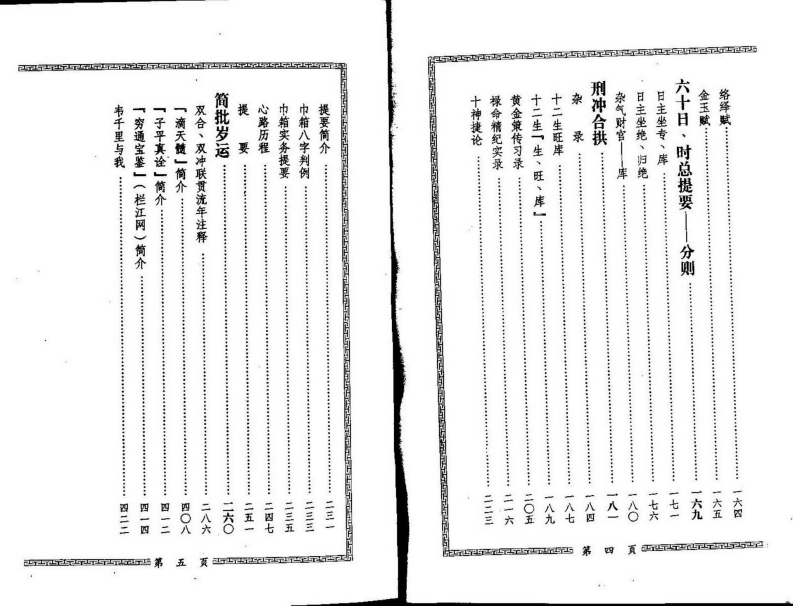 络绎赋……一六四
金玉赋……一六五
六十日、时总提要——分则……一六九
日主坐专、库……一七一
日主坐绝、归绝……一七六
杂气财官——库……一八〇
刑冲合拱……一八一
杂录……一八四
十二生旺库……一八七
十二生「生、旺、库」……一八九
黄金策传习录……二〇五
禄命精纪实录……二一六
十神捷论……二二三
第四页
提要简介……二三一
巾箱八字判例……二三三
巾箱实务提要……二三五
心路历程……二四七
提要……二五一
简批岁运……二六〇
双合、双冲联贯流年注释……二八六
「滴天髓」简介……四〇八
「子平真诠」简介……四一二
「穷通宝鉴」（栏江网）简介……四一四
韦千里与我……四二二
第五页